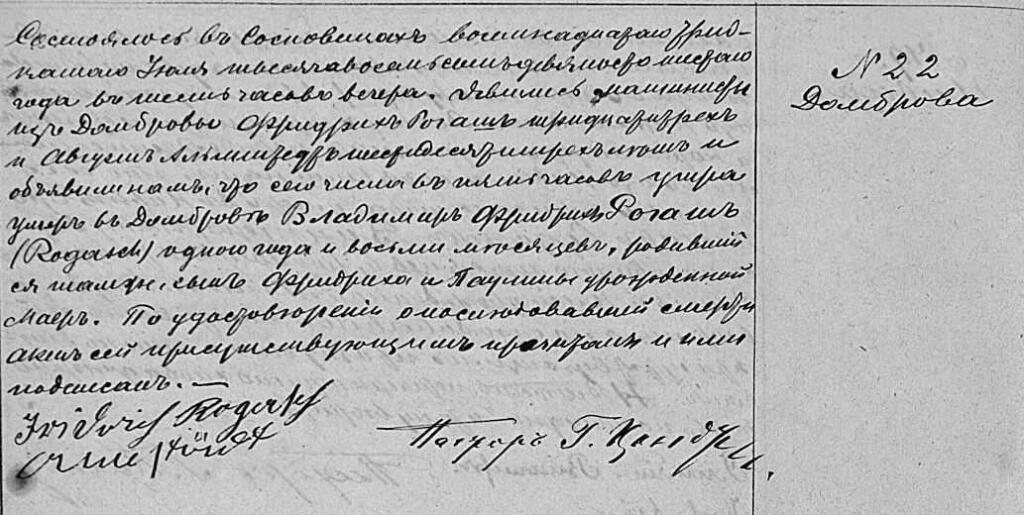 Состоялось въ Сосновицахъ восмнадцатаго /трид-
цатаго/ Іюля тысяча восемьсотъ девяносто шестаго
года въ шесть часовъ вечера. Явились машинисты
изъ Домбровы Фридрихъ Рогашъ тридцати трехъ
и Августъ шестидесяти трехъ лѣтъ и
объявили намъ, что сего числа въ пять часовъ утра
умеръ въ Домбровѣ Владимиръ Фридрихъ Рогашъ
(Rogasch) одного года и восьми мѣсяцевъ, родивший
ся тамже, сынъ Фридриха и Паулины урожденной
Маеръ. По удостовѣреніи о послѣдовавшей смерти
актъ сей присутствующимъ прочитанъ и ими
подписанъ. —
Fridrich Rogasch
Пасторъ Г.
N 22
Домброва